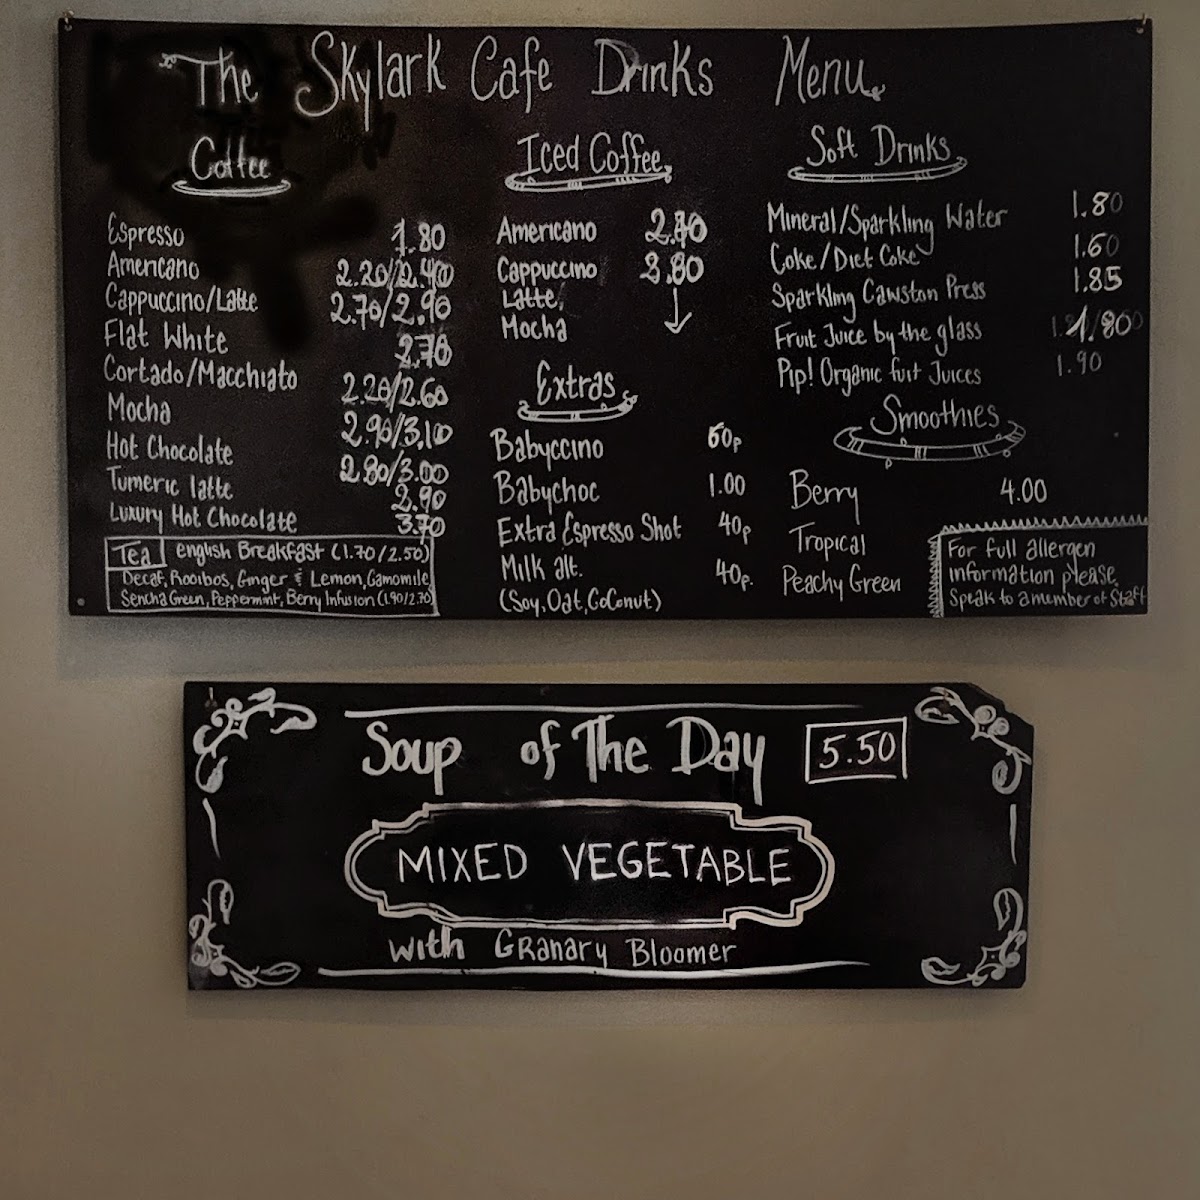 The Skylark Cafe Drinks Menu
Coffee
Espresso 1.80
Americano 2.20/2.40
Cappuccino/Latte 2.70/2.90
Flat White 2.70
Cortado/Macchiato 2.20/2.60
Mocha 2.90/3.10
Hot Chocolate 2.80/3.00
Tumeric latte 2.90
Luxury Hot Chocolate 3.70
Tea english Breakfast (1.70/2.50)
Decaf, Rooibos, Ginger & Lemon, Camomile,
Sencha Green, Peppermint, Berry Infusion (1.90/2.70)
Iced Coffee
Americano
Cappuccino 3.80
Latte,
Mocha
Extras
Babyccino 60p
Babychoc 1.00
Extra Espresso Shot 40p
Milk alt. 40p.
(Soy, Oat, Coconut)
Soft Drinks
Mineral/Sparkling Water 1.80
Coke/Diet Coke 1.60
Sparkling Cawston Press 1.85
Fruit Juice by the glass 1.80
Pip! Organic fuit Juices 1.90
Smoothies
Berry 4.00
Tropical
Peachy Green
For full allergen
information please
Speak to a member of Staff
Soup of The Day 5.50
MIXED VEGETABLE
with Granary Bloomer